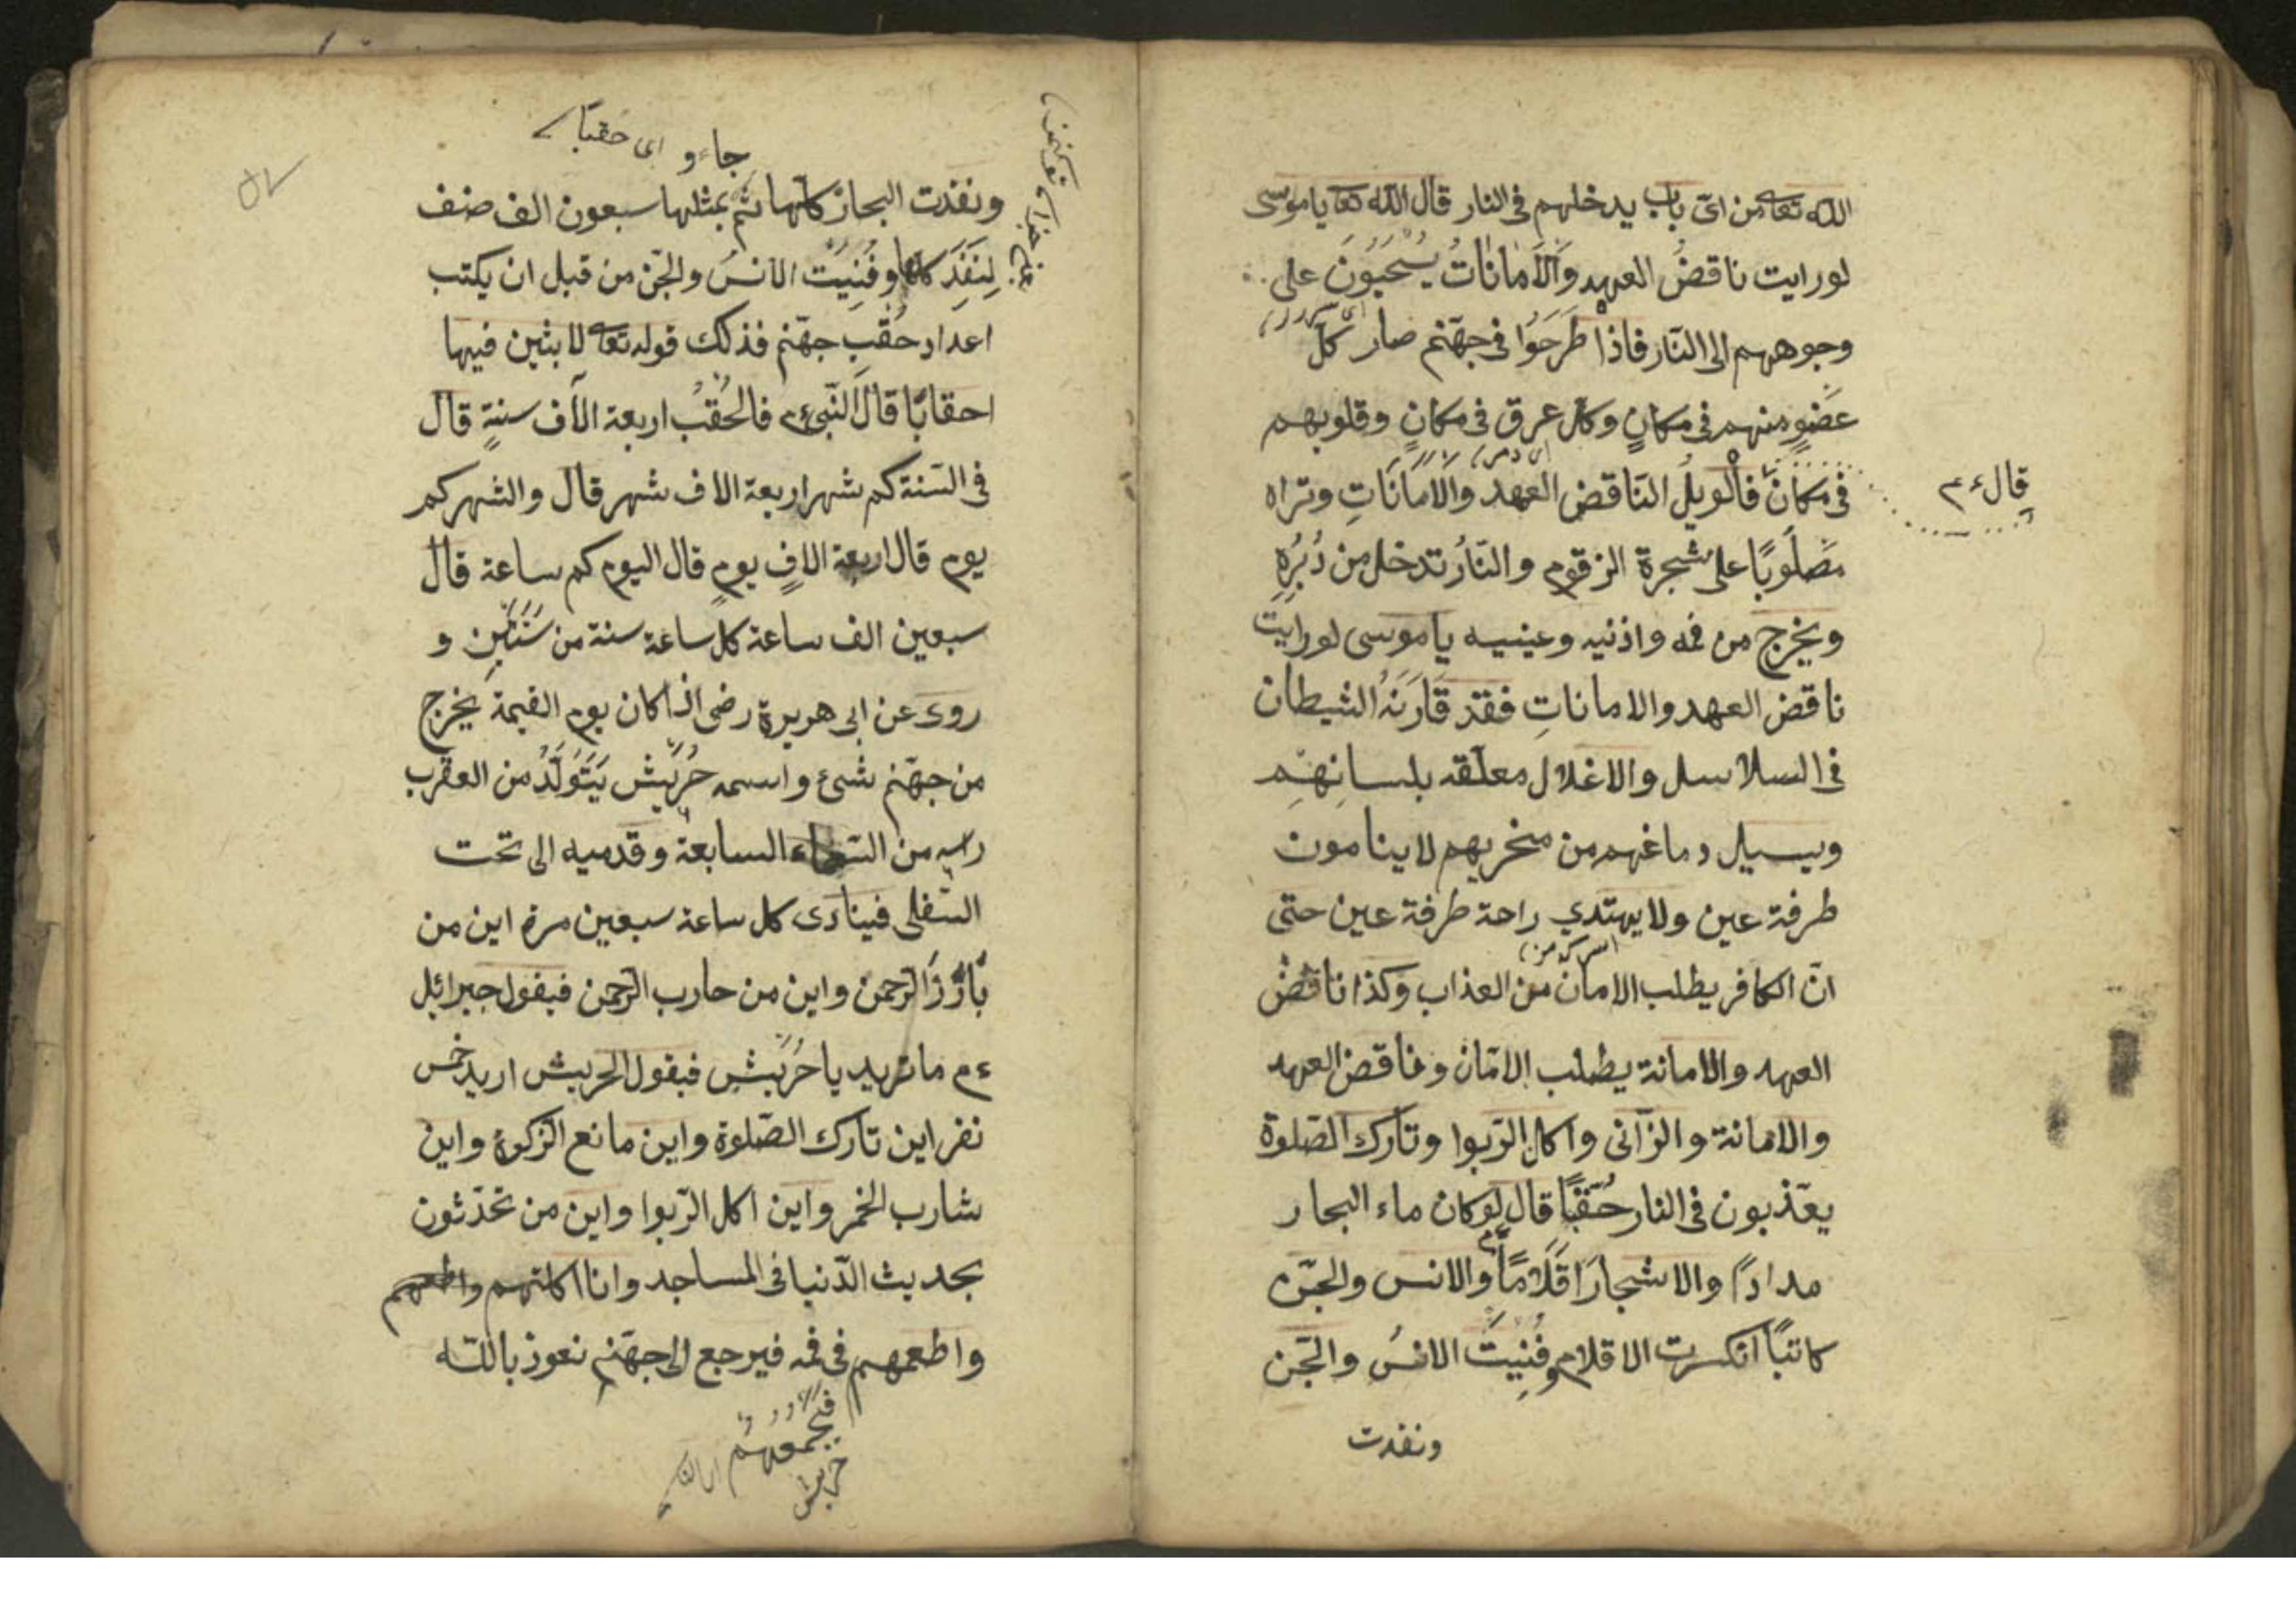 الله تعا من اى باب يدخلهم فى النار قال الله تعا يا موسى
لو رايت ناقضُ العهد والاَمَانَاتُ يُسْحَبُونَ على
وجوههم الى النّار فاذا طَرَحَوُا فى جهنّم صار كلّ
عضوٍ منهم فى مكانٍ وكل عرق فى مكانٍ وقلوبهم
فى مكان فالويلُ النّاقض العهد والاَمَانَاتِ وتراه
قال ءم
مَصلُوبًا على شجرة الزقوم والنّارُ تدخل من دُبُرِهِ
ويخرج من فمه واذنيه وعينيه يا موسى لو رايت
ناقض العهد والامانات فقد قَارَنَهُ الشيطان
فى السلاسل والاغلال معلّقه بلسانهم
ويسيل دماغهم من منخريهم لا ينامون
طرفة عين ولا يهتدي راحة طرفة عين حتى
انّ الكافر يطلب الامان من العذاب وكذا ناقض
العهد والامانة يطلب الامان وناقض العهد
والامانة والزّانى واكل الرّبوا وتارك الصّلوة
يعّذبون فى النار حُقبًا قال لو كان ماء البحار
مدادًا والاشجارَ اقَلَامًا والانس والجنّ
كاتبًا انكسرت الاقلام وفُنِيتَ الانسُ والجّن
ونفدت
جاءو اى حقبًا
ونفدت البحار كلّها ثم بمثلها سبعون الف صنف
لِنَفَدَ كلها وفُنِيَتَ الانسُ والجّن من قبل ان يكتب
اعداد حُقُبِ جهّنم فذلك قوله تعا لابثين فيها
احقابًا قال النّبى ءم فالحُقْبُ اربعة الاف سنةٍ قال
فى السّنة كم شهر اربعة الاف شهر قال والشهر كم
يوم قال اربعة الافٍ يومٍ قال اليوم كم ساعة قال
سبعين الف ساعة كل ساعة سنة من سَنَتَيْنِ و
روى عن ابى هريرة رضى اذا كان يوم القيمة يخرج
من جهّنم شىئ واسمه حُرَيّش يَتَوَلَّدُ من العقرب
راسه من السّماء السابعة وقدميه الى تحت
السّفلى فينادى كل ساعة سبعين مرة اين من
بَارَزَ الرّحمن واين من حارب الرّحمن فيقول جبرائيل
ءم ما تريد يا حُرَيشِ فيقول الحريش اريد خمس
نفر اين تارك الصّلوة واين مانع الزّكوة واين
شارب الخمر واين اكل الرّبوا واين من تحدّثون
بحديث الدّنيا فى المساجد وانا اكلتهم واطعمهم
واطعمهم فى فمه فيرجع الى جهّنم نعوذ بالله
فيجمعهم
حريش